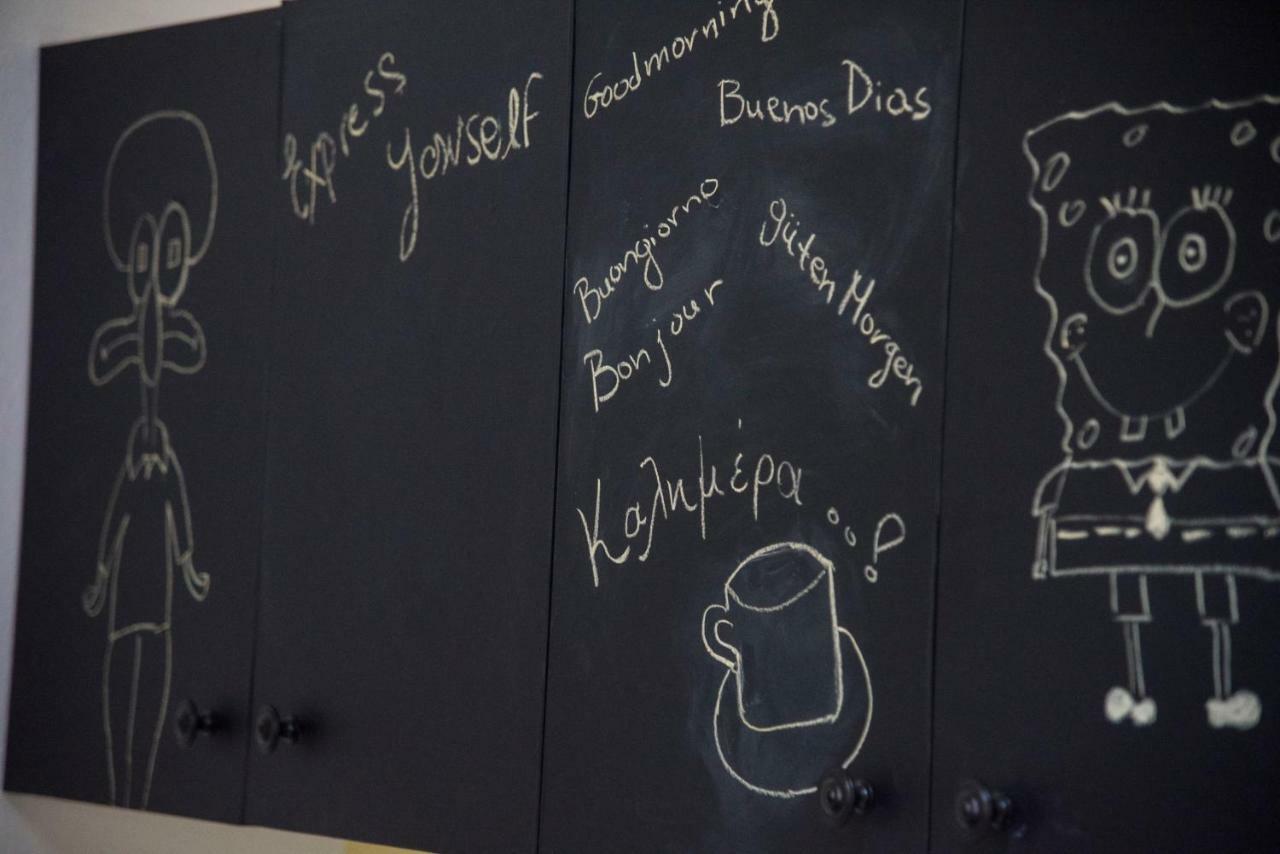 Express
yourself
Goodmorning
Buenos Dias
Buongiorno
güten Morgen
Bonjour
Καλημέρα